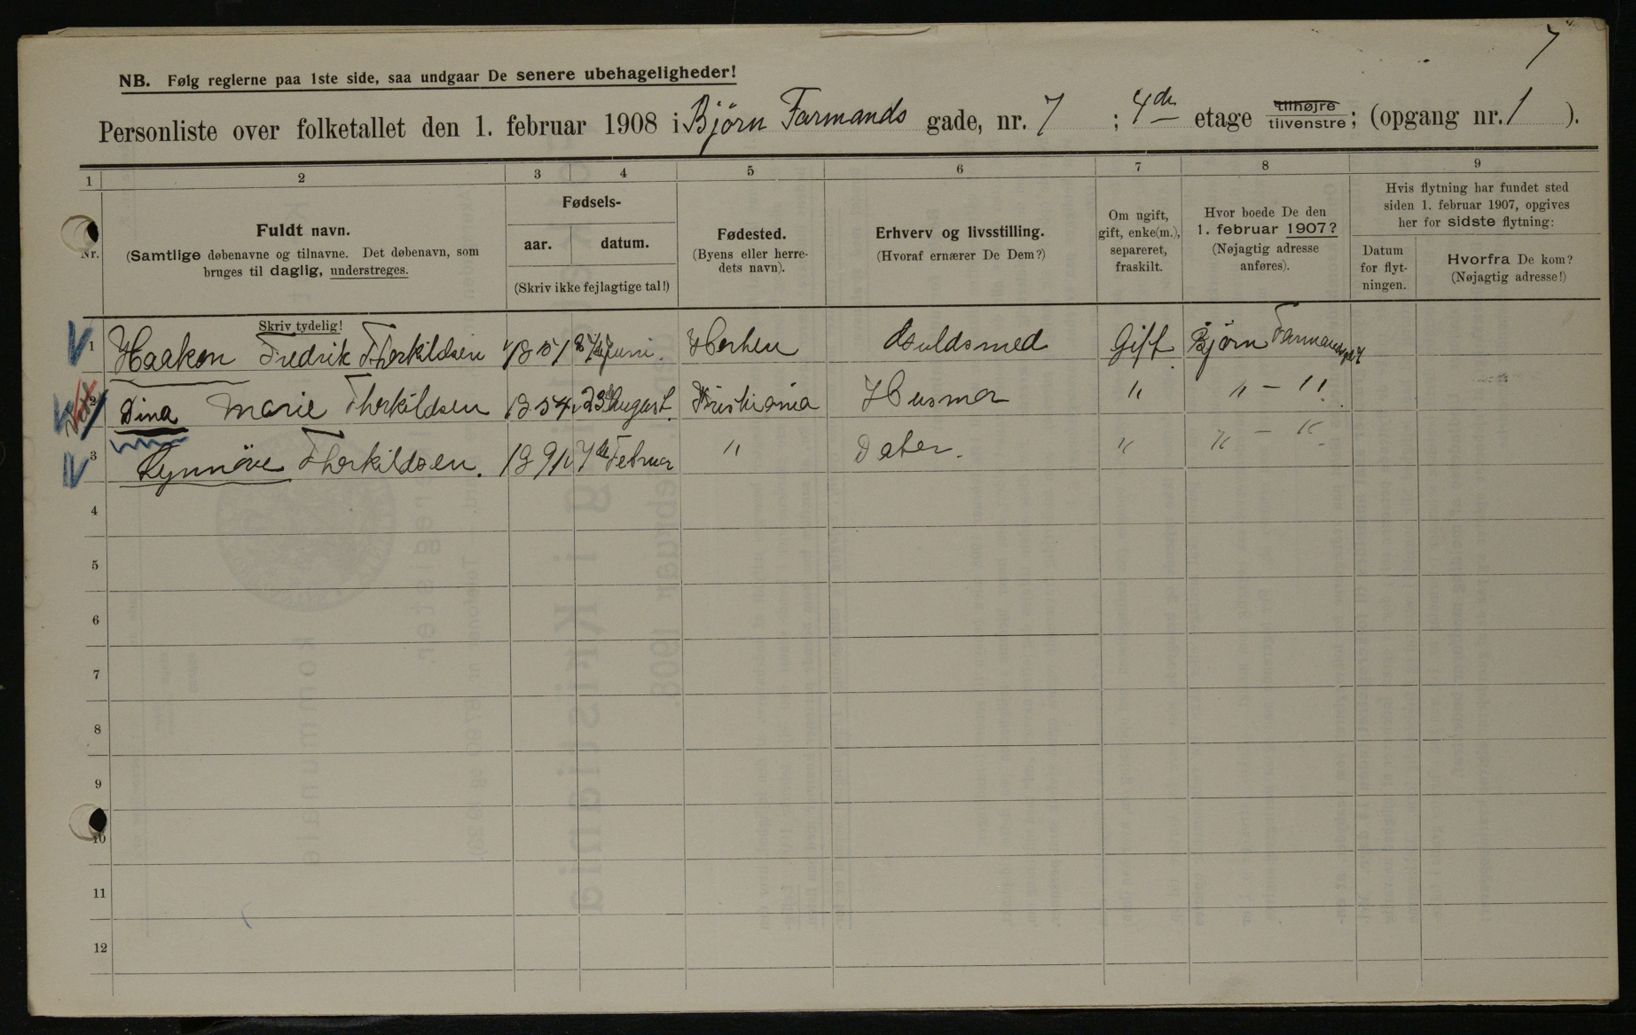 7
NB. Følg reglerne paa 1ste side, saa undgaar De senere ubehageligheder!
Personliste over folketallet den 1. februar 1908 i Bjørn Farmands gade, nr. 7 ; 4de etage tilhøjre tilvenstre; (opgang nr. 1 ).
1 2 3 4 5 6 7 8 9
Nr.
Fuldt navn.
(Samtlige døbenavne og tilnavne. Det døbenavn, som
bruges til daglig, understreges.
Skriv tydelig!
Fødsels-
aar. datum.
(Skriv ikke fejlagtige tal!)
Fødested.
(Byens eller herre-
dets navn).
Erhverv og livsstilling.
(Hvoraf ernærer De Dem?)
Om ugift,
gift, enke(m.),
separeret,
fraskilt.
Hvor boede De den
1. februar 1907?
(Nøjagtig adresse
anføres).
Hvis flytning har fundet sted
siden 1. februar 1907, opgives
her for sidste flytning:
Datum
for flyt-
ningen.
Hvorfra De kom?
(Nøjagtig adresse!)
1 Haakon Fredrik Therkildsen 1851 Juni. Horten Guldsmed Gift Bjørn Farmandsg 7
2 Dina Marie Therkildsen 1854 23de August. Kristiania Husmor " " - "
3 Synnöve Therkildsen. 1891 7de Februar " Dater. " " - "
4
5
6
7
8
9
10
11
12